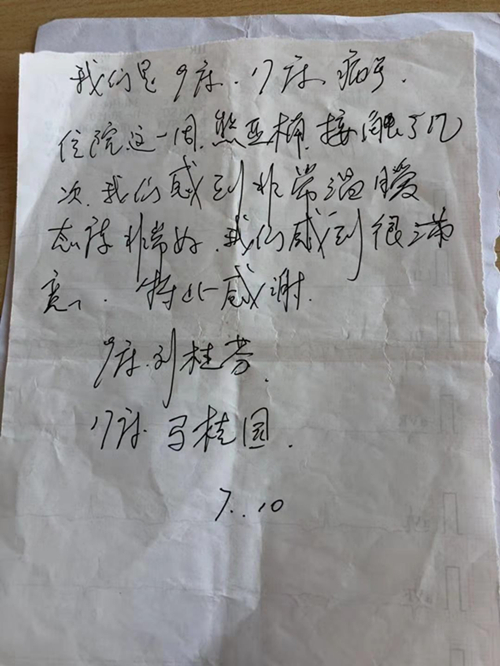 我们是9床、17床病号.
住院这一周.熊亚楠.接触了几
次.我们感到非常温暖
态度非常好.我们感到很满
意、特此感谢.
9床.刘桂芬.
17床.马桂园.
7..10